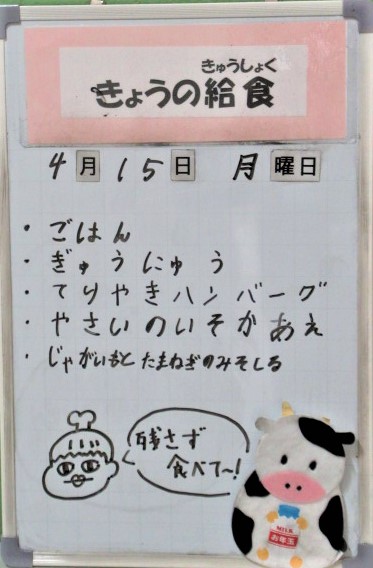 きゅうしょく
きょうの給食
4月15日 月曜日
・ごはん
・ぎゅうにゅう
・てりやきハンバーグ
・やさいのいそかあえ
・じゃがいもとたまねぎのみそしる
残さず
食べて〜!
MILK
お年玉